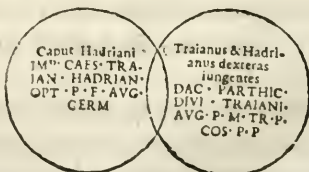 Caput Hadriani
IMP· CAES· TRA-
JAN· HADRIAN·
OPT · P · F · AVG·
GERM
Traianus & Hadri-
anus dexteras
iungentes
DAC · PARTHIC·
DIVI · TRAIANI·
AVG· P· M· TR· P·
COS· P· P